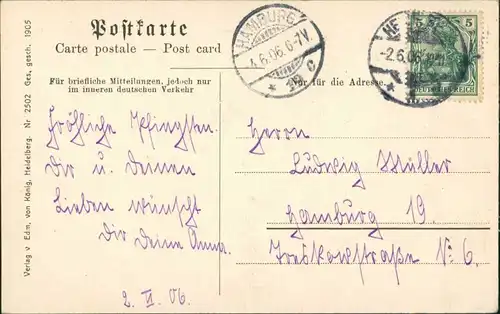 Postkarte
Carte postale — Post card
Für briefliche Mitteilungen, jedoch nur
im inneren deutschen Verkehr
Nur für die Adresse
Verlag v Edm. von König, Heidelberg. Nr 2502 Ges. gesch. 1905
HAMBURG
4.6.06.6-7V.
* 19 c
HE
-2.6.06
5 5
DEUTSCHES REICH
Fröhliche Pfingsten
Dir u. Deinen
Lieben wünscht
Dir Deine Anna.
2. VI. 06.
Herrn
Ludwig Müller
Hamburg 19.
Tresckowstraße No 6.